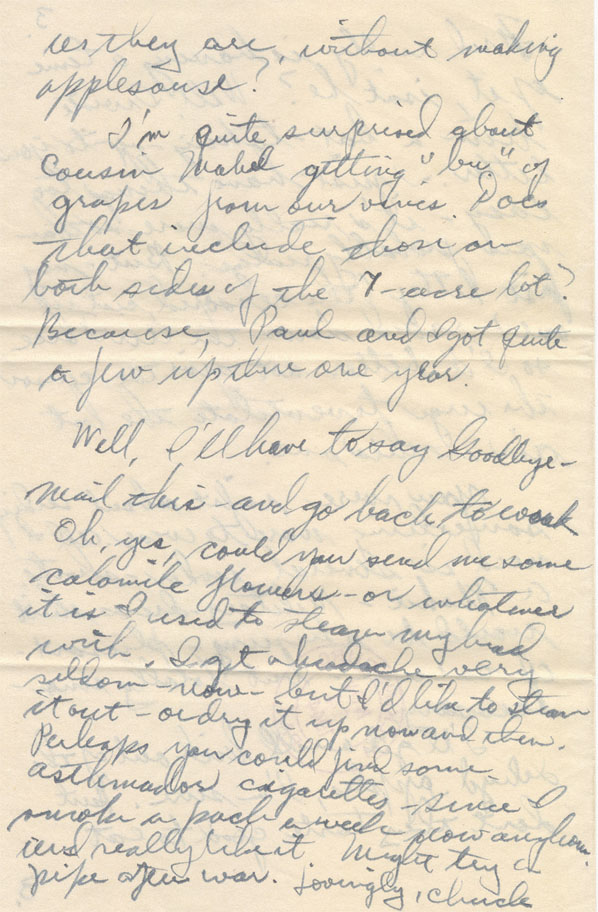 as they are, without making
applesouse?
I'm quite surprised about
Cousin Mabel getting "bu" of
grapes from our vines. Does
that include those on
both sides of the 7-acre lot?
Because, Paul and I got quite
a few up there one year.
Well, I'll have to say Goodbye-
mail this - and go back to work
Oh, yes, could you send me some
calomile flowers - or whatever
it is I used to steam my head
with. I get a headache very
seldom - now - but I'd like to steam
it out - or dry it up now and then.
Perhaps you could find some
asthmador cigarettes - since I
smoke a pack a week now anyhow.
and really like it. Might try a
pipe after war. Lovingly, Chuck